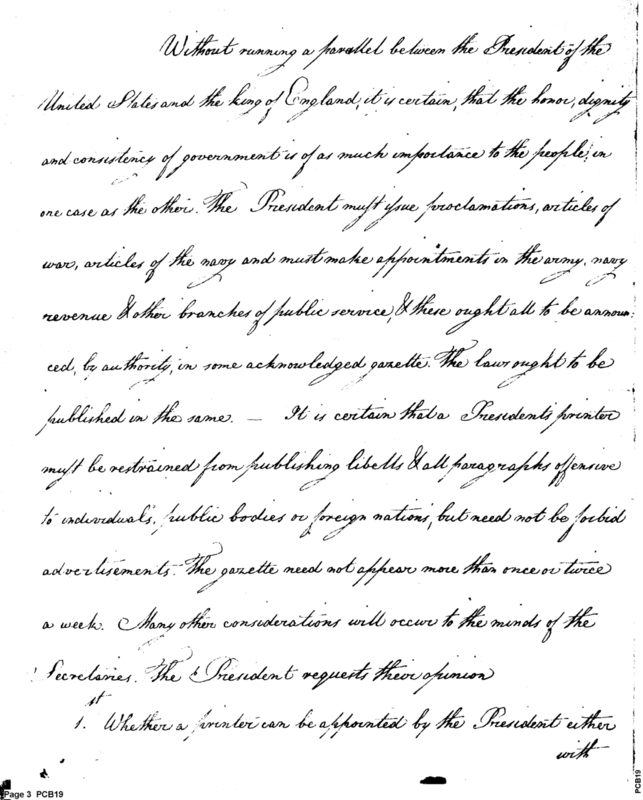 Without running a parallel between the President of the
United States and the king of England, it is certain, that the honor, dignity
and consistency of government is of as much importance to the people, in
one case as the other. The President must issue proclamations, articles of
war, articles of the navy and must make appointments in the army, navy
revenue & other branches of public service, & these ought all to be announ:
ced, by authority, in some acknowledged gazette. The laws ought to be
published in the same. — It is certain that a President's printer
must be restrained from publishing libells & all paragraphs offensive
to individuals, public bodies or foreign nations, but need not be forbid
advertisements. The gazette need not appear more than once or twice
a week. Many other considerations will occur to the minds of the
Secretaries. The President requests their opinion
1.st Whether a printer can be appointed by the President either
with
Page 3 PCB19
PCB19